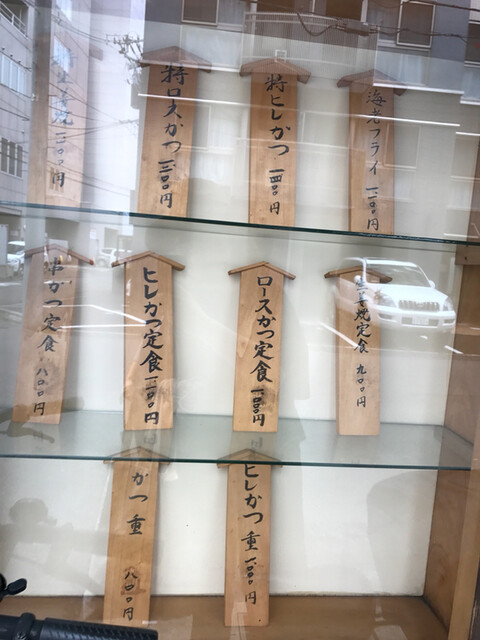 海老フライ 一二〇〇円
特ヒレかつ 一四〇〇円
特ロスかつ 一三〇〇円
〇〇円
生姜焼定食 九〇〇円
ロースかつ定食 一〇〇〇円
ヒレかつ定食 一一〇〇円
串かつ定食 八〇〇円
ヒレかつ重 一〇〇〇円
かつ重 八〇〇円